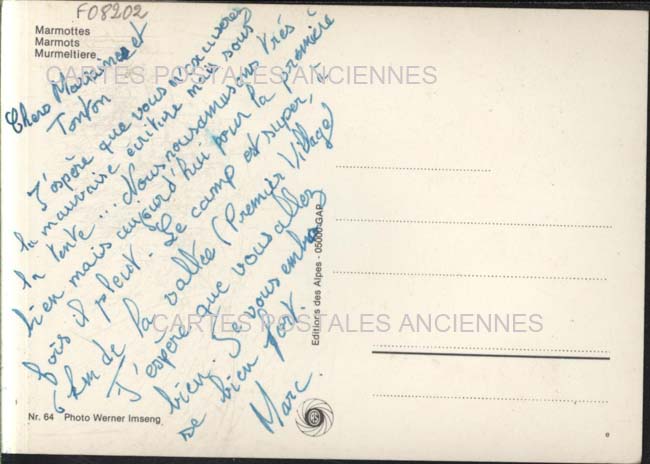 F08202
Marmottes
Marmots
Murmeltiere
CARTES POSTALES ANCIENNES
Chers Marraine et
Tonton
J'espère que vous m'excuserez
la mauvaise écriture mais sous
la tente... Nous nous amusons très
bien mais aujourd'hui pour la première
fois il pleut. Le camp est super, à
6 km de la vallée (Premier Village)
J'espère que vous allez
bien. Je vous embras
se bien fort.
Marc.
Editions des Alpes - 05000 GAP
CARTES POSTALES ANCIENNES
Nr. 64 Photo Werner Imseng
e